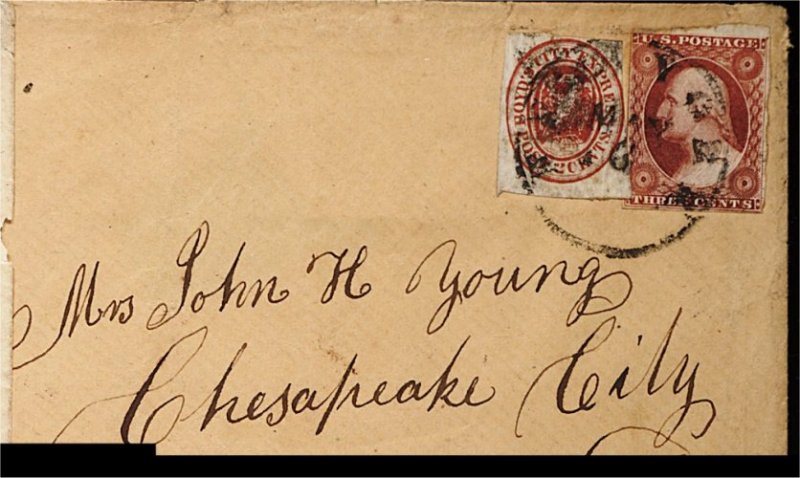 BOYD'S CITY EXPRESS
POST 2 CENTS.
U.S. POSTAGE
THREE CENTS
Mrs John H Young
Chesapeake City